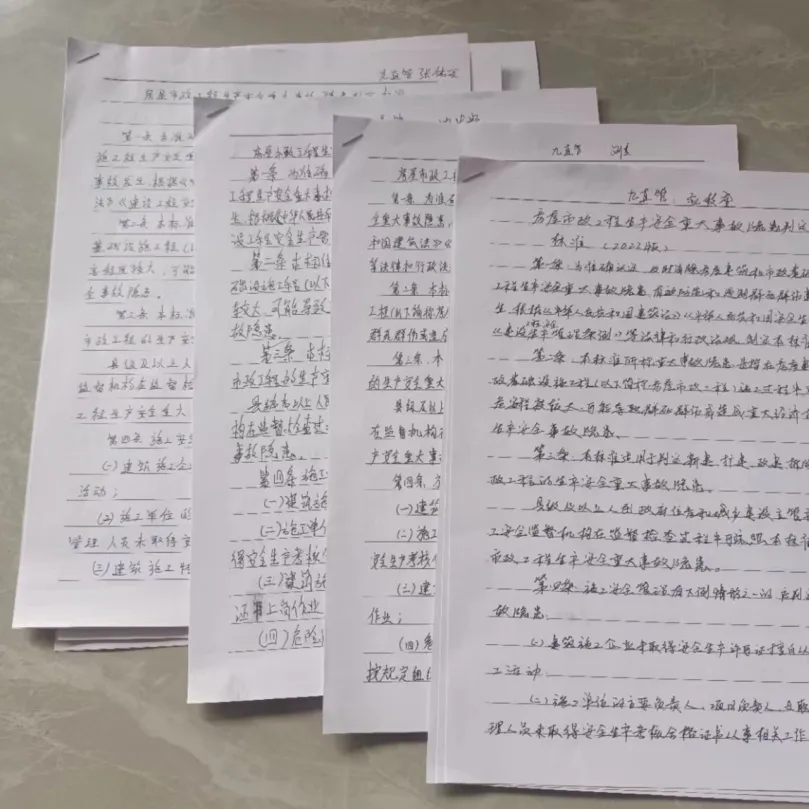 九直管 张
房屋市政工程生产安全重大事故隐患判定标准
第一条 为准
施工程生产安全
事故发生,根据《
法》《建设工程安
第二条 本标准
基础设施工程(
害程度较大、可能
全事故隐患。
第三条 本标准
市政工程的生产安
县级及以上人
监督机构在监督检
工程生产安全重大
第四条 施工安
(一)建筑施工企
活动;
(二)施工单位的
管理人员未取得安
(三)建筑施工特
房屋市政工程生
第一条 为准确
工程生产安全重大事故
生,根据《中华人民共和
设工程安全生产管
第二条 本标准
础设施工程(以下
较大、可能导致
故隐患。
第三条 本标
市政工程的生产安
县级及以上人
构在监督检查过
事故隐患。
第四条 施工
(一)建筑施
(二)施工单
得安全生产考核
(三)建筑施
证书上岗作业
(四)危险
九直管 刘
房屋市政工
第一条 为准
全重大事故隐患,
和国建筑法》《
等法律和行政法
第二条 本标
工程(以下简称房
群死群伤或造成
第三条 本
的生产安全重大
县级及以上
在监督机构在
产安全重大事
第四条 施
(一)建筑
(二)施工
安全生产考核
(三)建
作业;
(四)危
按规定组
九直管:
房屋市政工程生产安全重大事故隐患判定
标准(2022版)
第一条 为准确认定、及时消除房屋建筑和市政基础
工程生产安全重大事故隐患,有效防范和遏制群死群伤事
生,根据《中华人民共和国建筑法》《中华人民共和国安全生
《建设工程安全生产管理条例》等法律和行政法规,制定本标准
第二条 本标准所称重大事故隐患,是指在房屋建
政基础设施工程(以下简称房屋市政工程)施工过程中
危害程度较大、可能导致群死群伤或造成重大经济
生产安全事故隐患。
第三条 本标准适用于判定新建、扩建、改建、拆除
政工程的生产安全重大事故隐患。
县级及以上人民政府住房和城乡建设主管
工安全监督机构在监督检查过程中可依照本标准
市政工程生产安全重大事故隐患。
第四条 施工安全管理有下列情形之一的,应判
故隐患:
(一)建筑施工企业未取得安全生产许可证擅自从
工活动;
(二)施工单位的主要负责人、项目负责人、专职
理人员未取得安全生产考核合格证书从事相关工作